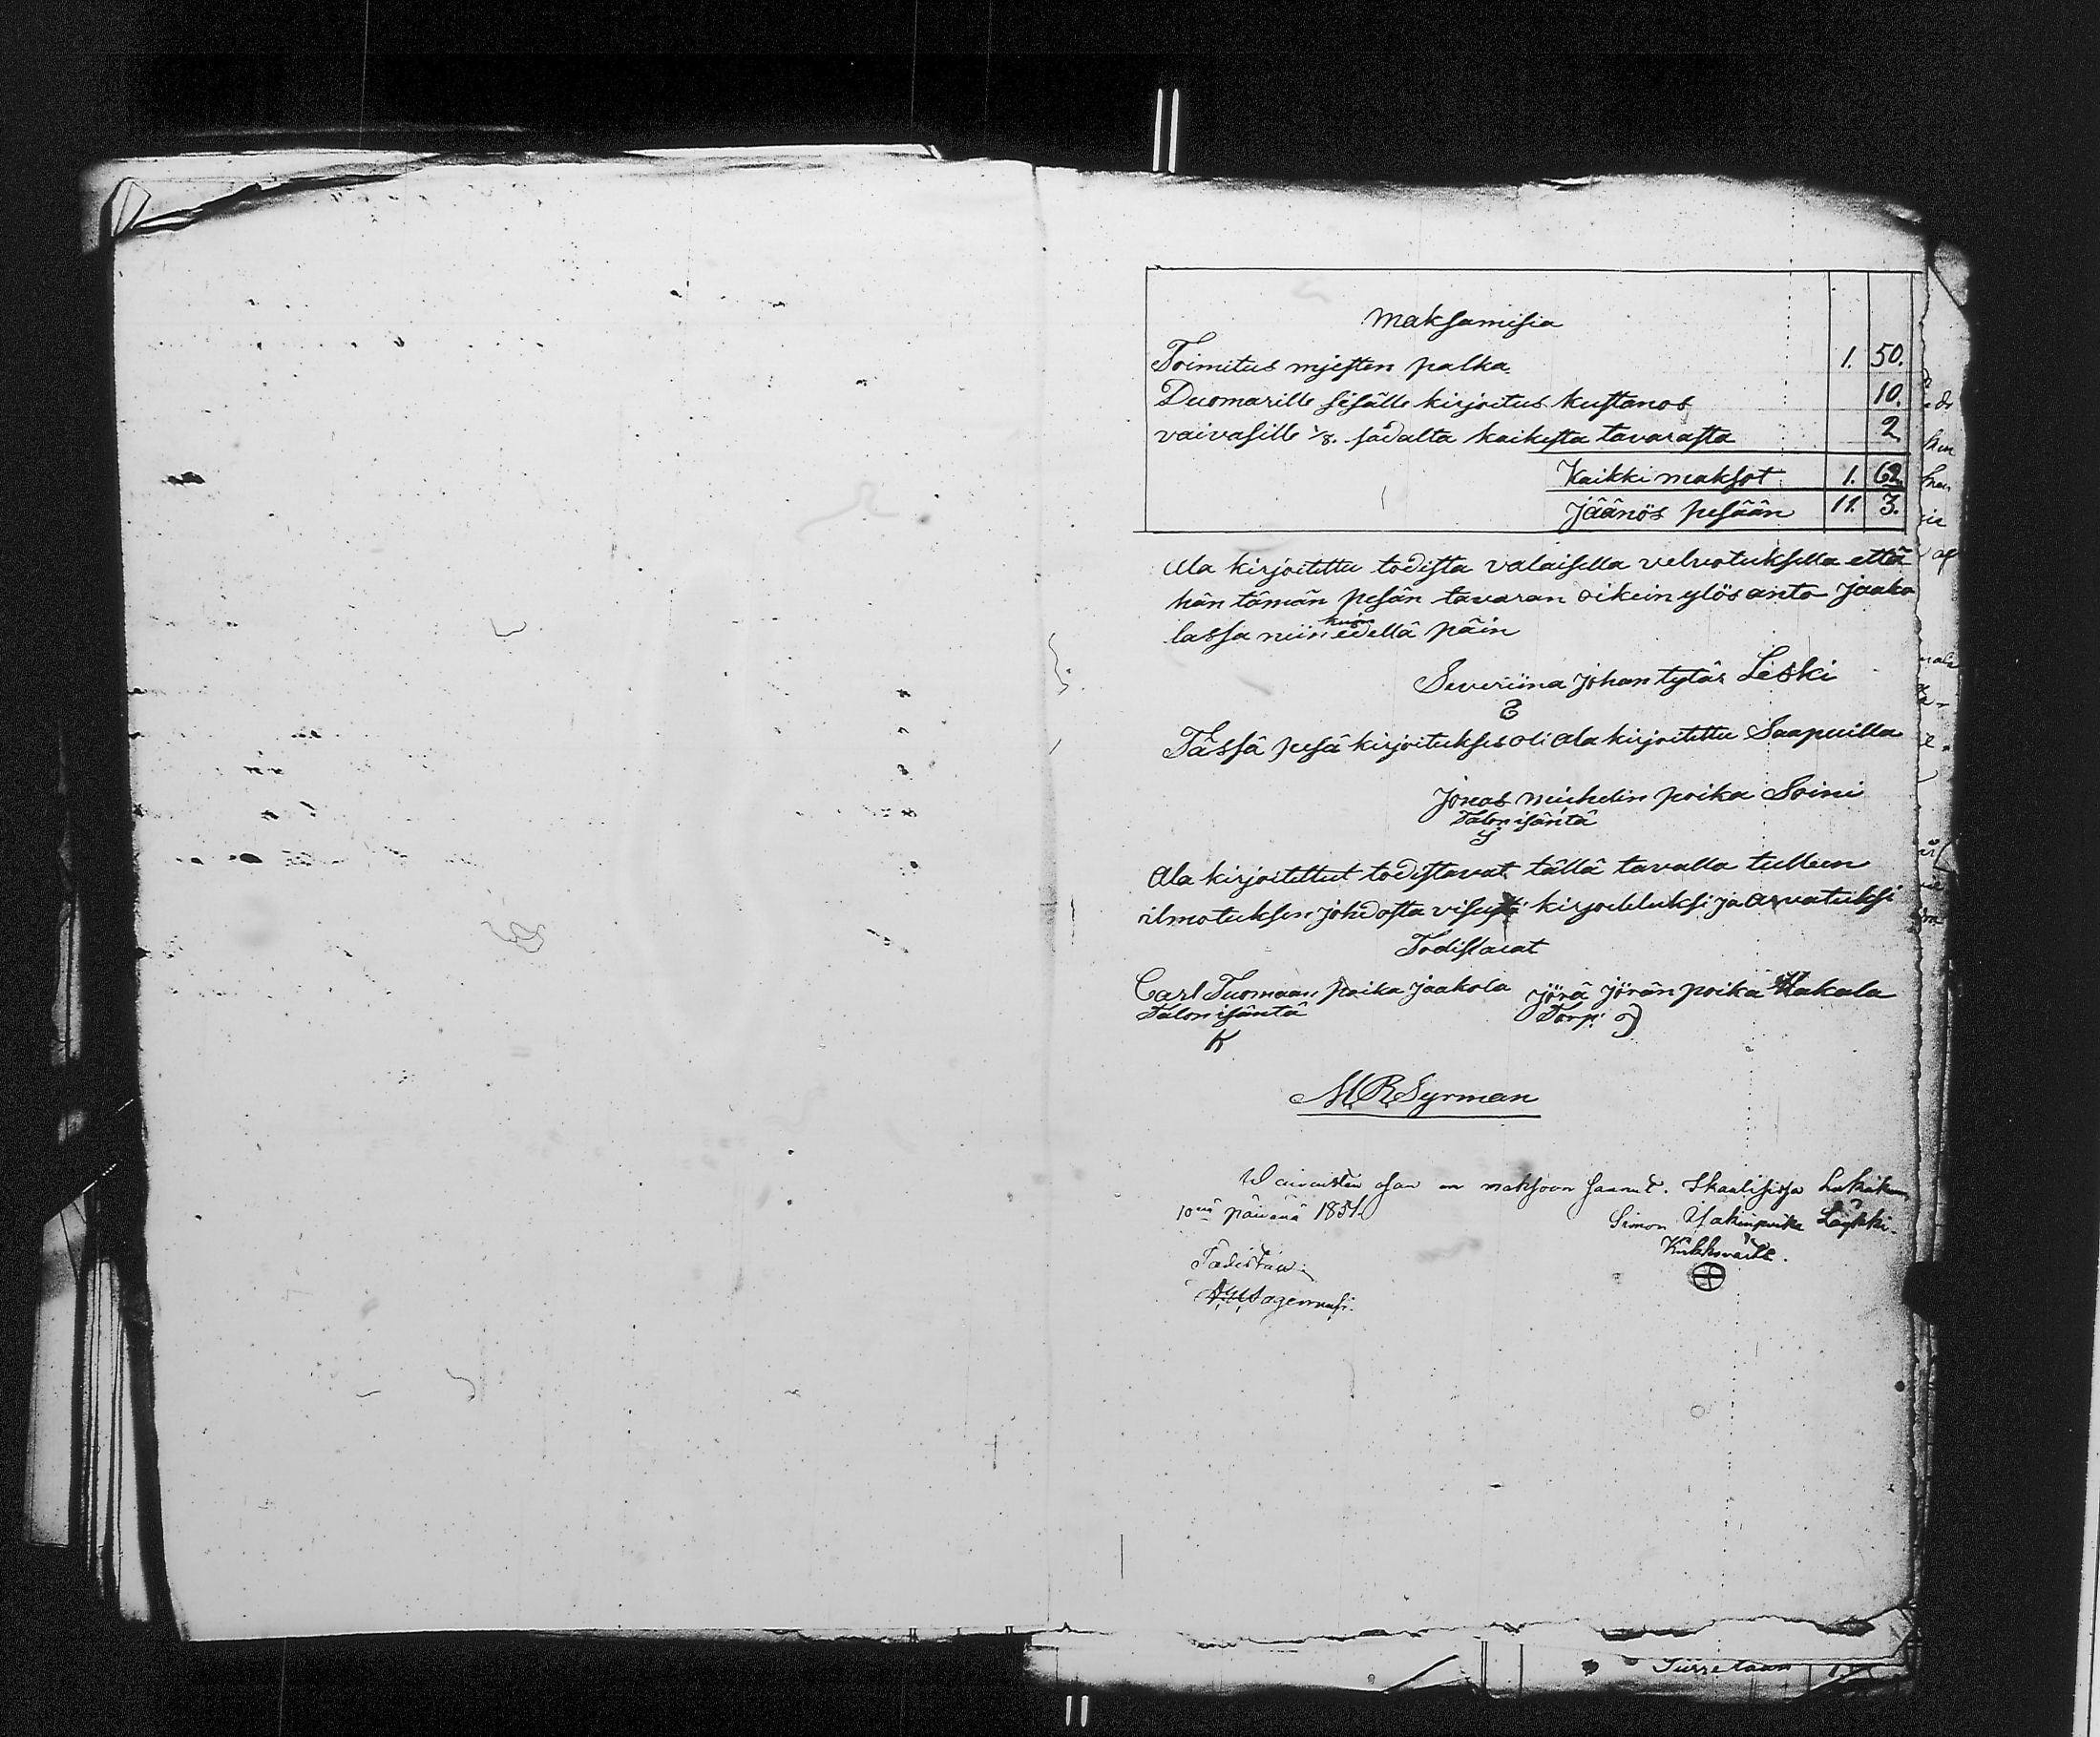 Maksamisia
Toimitus mjesten palka. 1. 50.
Duomarille sisälle kirjoitus kustanos 10.
vaivasille 1/8. sadalta kaikesta tavarasta 2
Kaikki maksot 1. 62.
Jäänös pesään 11. 3.
Ala kirjoitettu todista valaisella velvotuksella että
hän tämän pesän tavaran oikein ylös anto Jaako
lassa niin kuin edellä päin
Severiina Johan tytär Leski
E
Tässä pesä kirjoitukses oli Ala kirjoitettu Saapuilla
Jonas Michelin poika Soini
Talon isäntä
Ala kirjoitettut todistavat tällä tavalla tulleen
ilmotuksen johdosta visusti kirjoitetuksi ja arvatuksi
Todistavat
Carl Tuomaan poika Jaakola Jörä Jörän poika Hakala
Talon isäntä Torp:
K
M. R. Syrman
Waivasten osan on maksoon saanut. Ikaalisissa
10nä päivänä 1851. Simon Läykki.
Kirkkoväiti.
Todistaa:
Tiirretään